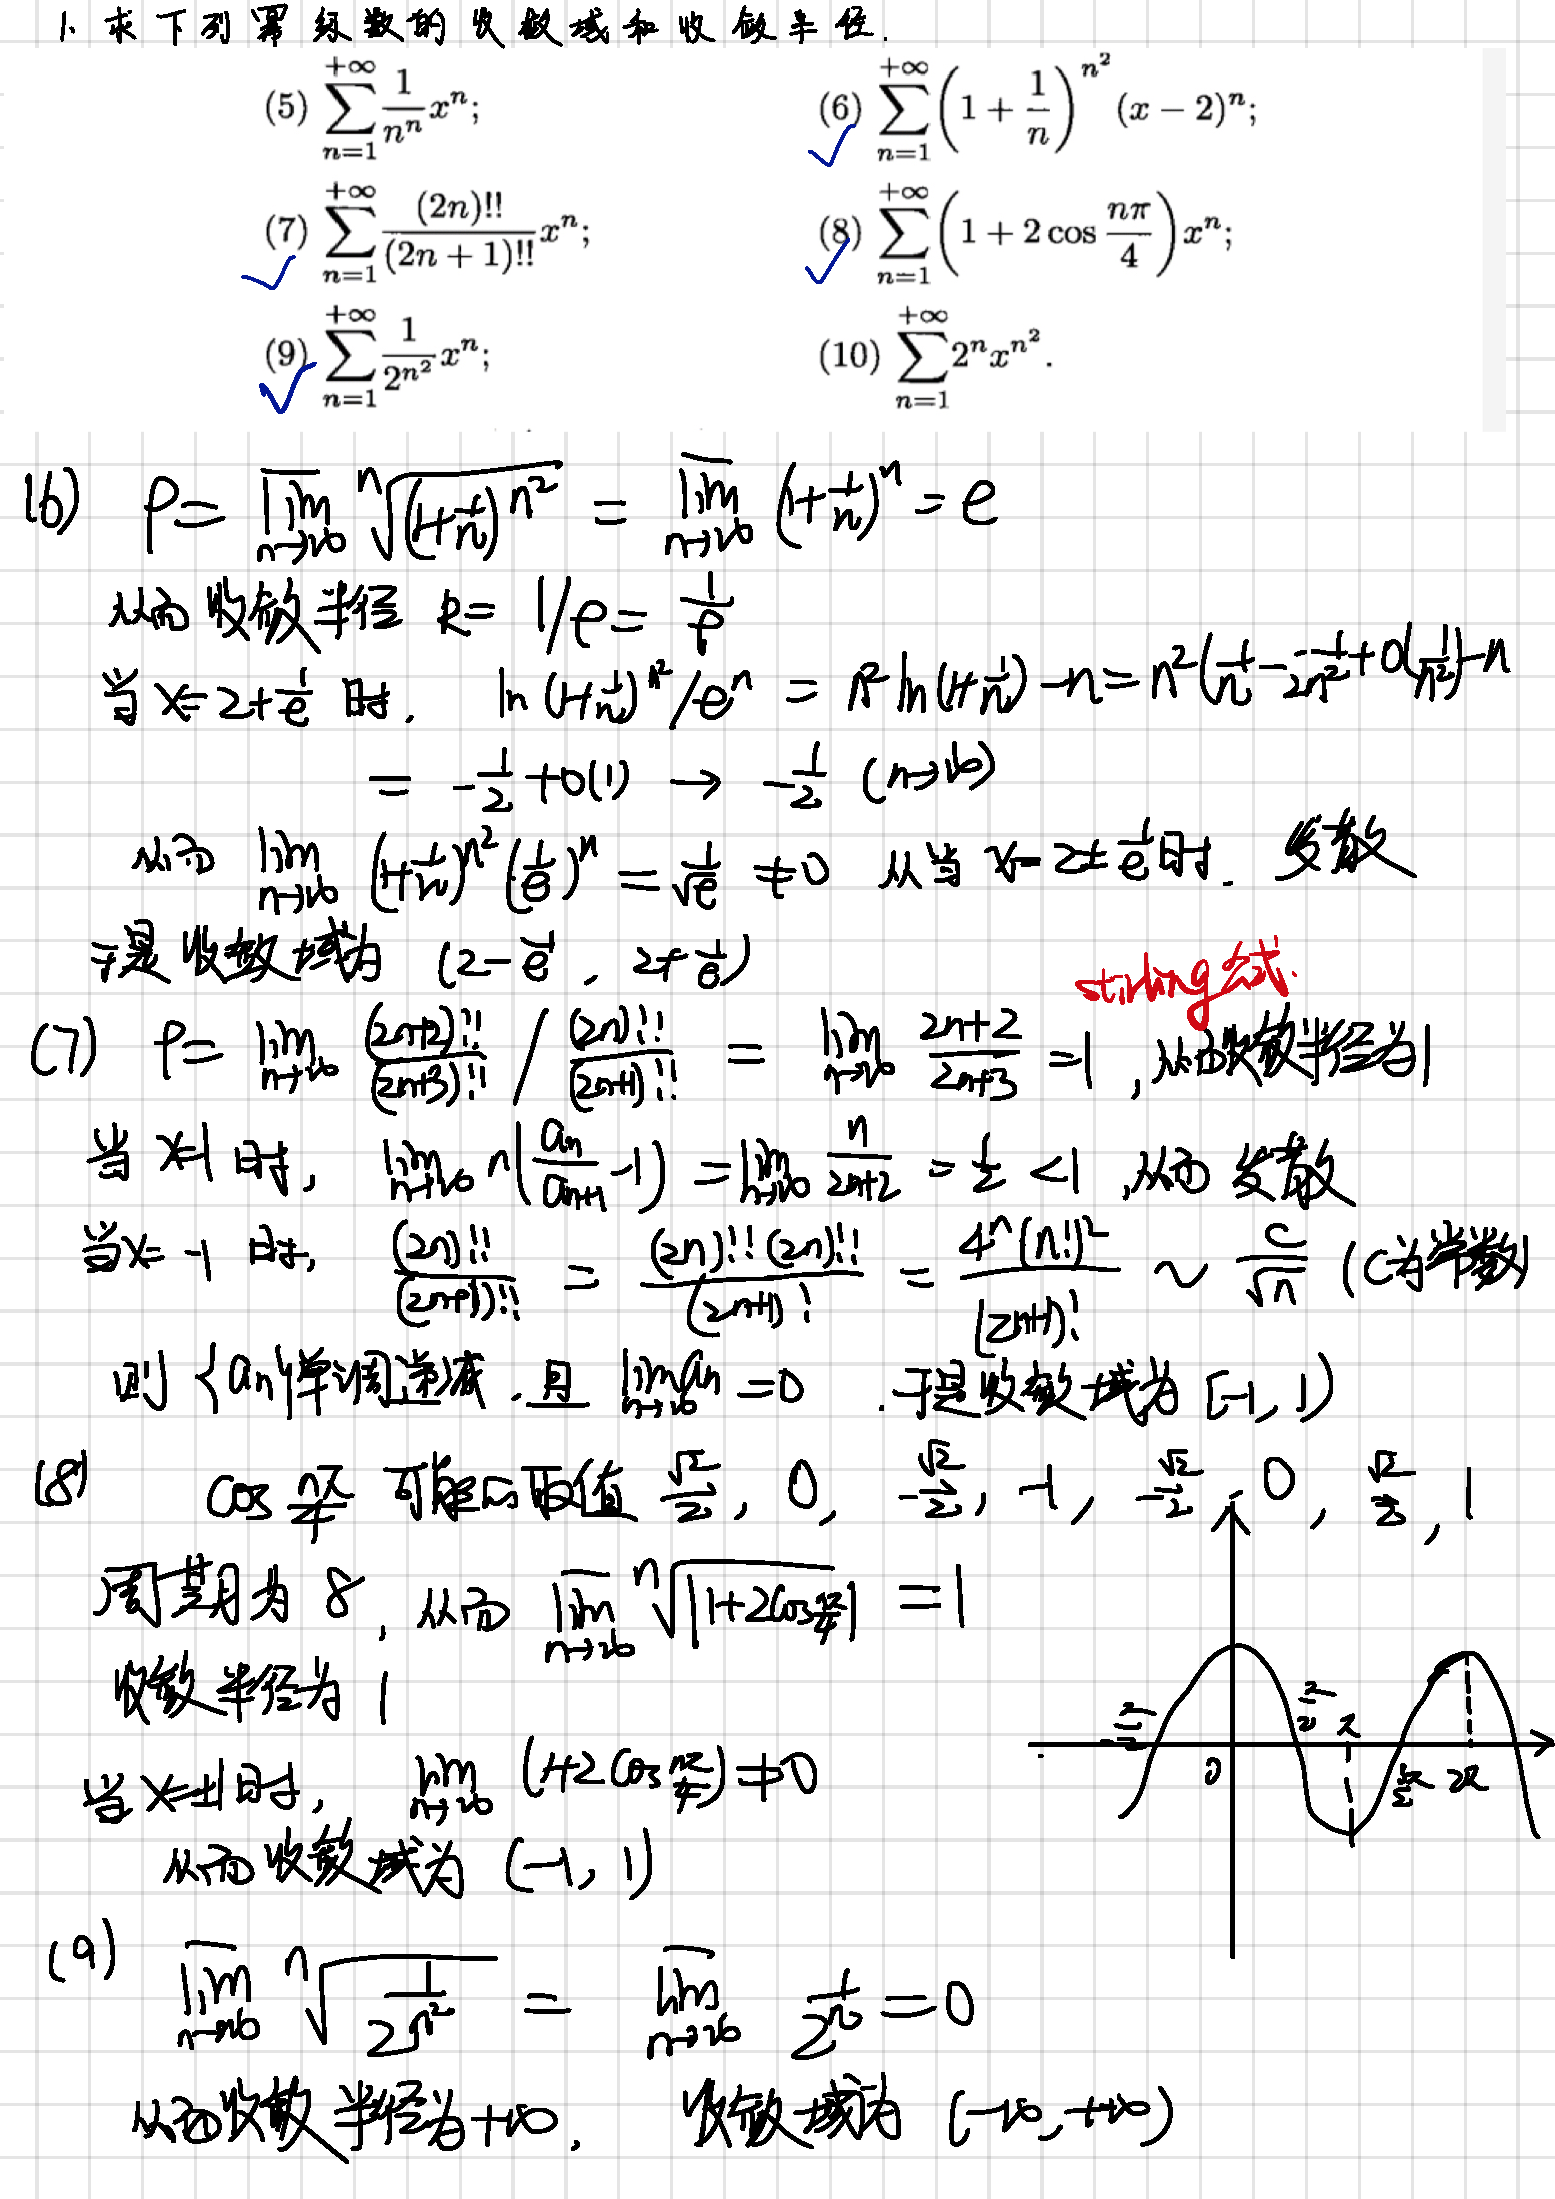 1. 求下列幂级数的收敛域和收敛半径.
(5) $\sum_{n=1}^{+\infty} \frac{1}{n^n} x^n$; (6) $\sum_{n=1}^{+\infty} \left(1+\frac{1}{n}\right)^{n^2} (x-2)^n$;
(7) $\sum_{n=1}^{+\infty} \frac{(2n)!!}{(2n+1)!!} x^n$; (8) $\sum_{n=1}^{+\infty} \left(1+2\cos\frac{n\pi}{4}\right) x^n$;
(9) $\sum_{n=1}^{+\infty} \frac{1}{2^{n^2}} x^n$; (10) $\sum_{n=1}^{+\infty} 2^n x^{n^2}$.
(6) $\rho = \overline{\lim}_{n\to\infty} \sqrt[n]{(1+\frac{1}{n})^{n^2}} = \overline{\lim}_{n\to\infty} (1+\frac{1}{n})^n = e$
从而收敛半径 $R = 1/\rho = \frac{1}{e}$
当 $x = 2+\frac{1}{e}$ 时. $\ln(1+\frac{1}{n})^{n^2}/e^n = n^2\ln(1+\frac{1}{n}) - n = n^2(\frac{1}{n} - \frac{1}{2n^2} + o(\frac{1}{n^2})) - n$
$= -\frac{1}{2} + o(1) \to -\frac{1}{2}$ $(n\to\infty)$
从而 $\lim_{n\to\infty} (1+\frac{1}{n})^{n^2} (\frac{1}{e})^n = \frac{1}{\sqrt{e}} \neq 0$ 从当 $x = 2\pm\frac{1}{e}$ 时. 发散
于是收敛域为 $(2-\frac{1}{e}, 2+\frac{1}{e})$
stirling公式.
(7) $\rho = \lim_{n\to\infty} \frac{(2n+2)!!}{(2n+3)!!} / \frac{(2n)!!}{(2n+1)!!} = \lim_{n\to\infty} \frac{2n+2}{2n+3} = 1$, 从而收敛半径为1
当 $x=1$ 时, $\lim_{n\to\infty} n(\frac{a_n}{a_{n+1}} - 1) = \lim_{n\to\infty} \frac{n}{2n+2} = \frac{1}{2} < 1$, 从而 发散
当 $x=-1$ 时, $\frac{(2n)!!}{(2n+1)!!} = \frac{(2n)!!(2n)!!}{(2n+1)!} = \frac{4^n(n!)^2}{(2n+1)!} \sim \frac{C}{\sqrt{n}}$ (C为常数)
则 $\{a_n\}$ 单调递减. 且 $\lim_{n\to\infty} a_n = 0$. 于是收敛域为 $[-1, 1)$
(8) $\cos\frac{n\pi}{4}$ 可能的取值 $\frac{\sqrt{2}}{2}, 0, -\frac{\sqrt{2}}{2}, -1, -\frac{\sqrt{2}}{2}, 0, \frac{\sqrt{2}}{2}, 1$
周期为 8, 从而 $\overline{\lim}_{n\to\infty} \sqrt[n]{|1+2\cos\frac{n\pi}{4}|} = 1$
收敛半径为 1
$-\frac{\pi}{2}$ 0 $\frac{\pi}{2}$ $\pi$ $\frac{3\pi}{2}$ $2\pi$
当 $x=\pm1$ 时, $\lim_{n\to\infty} (1+2\cos\frac{n\pi}{4}) \neq 0$
从而收敛域为 $(-1, 1)$
(9) $\overline{\lim}_{n\to\infty} \sqrt[n]{\frac{1}{2^{n^2}}} = \overline{\lim}_{n\to\infty} \frac{1}{2^n} = 0$
从而收敛半径为 $+\infty$, 收敛域为 $(-\infty, +\infty)$